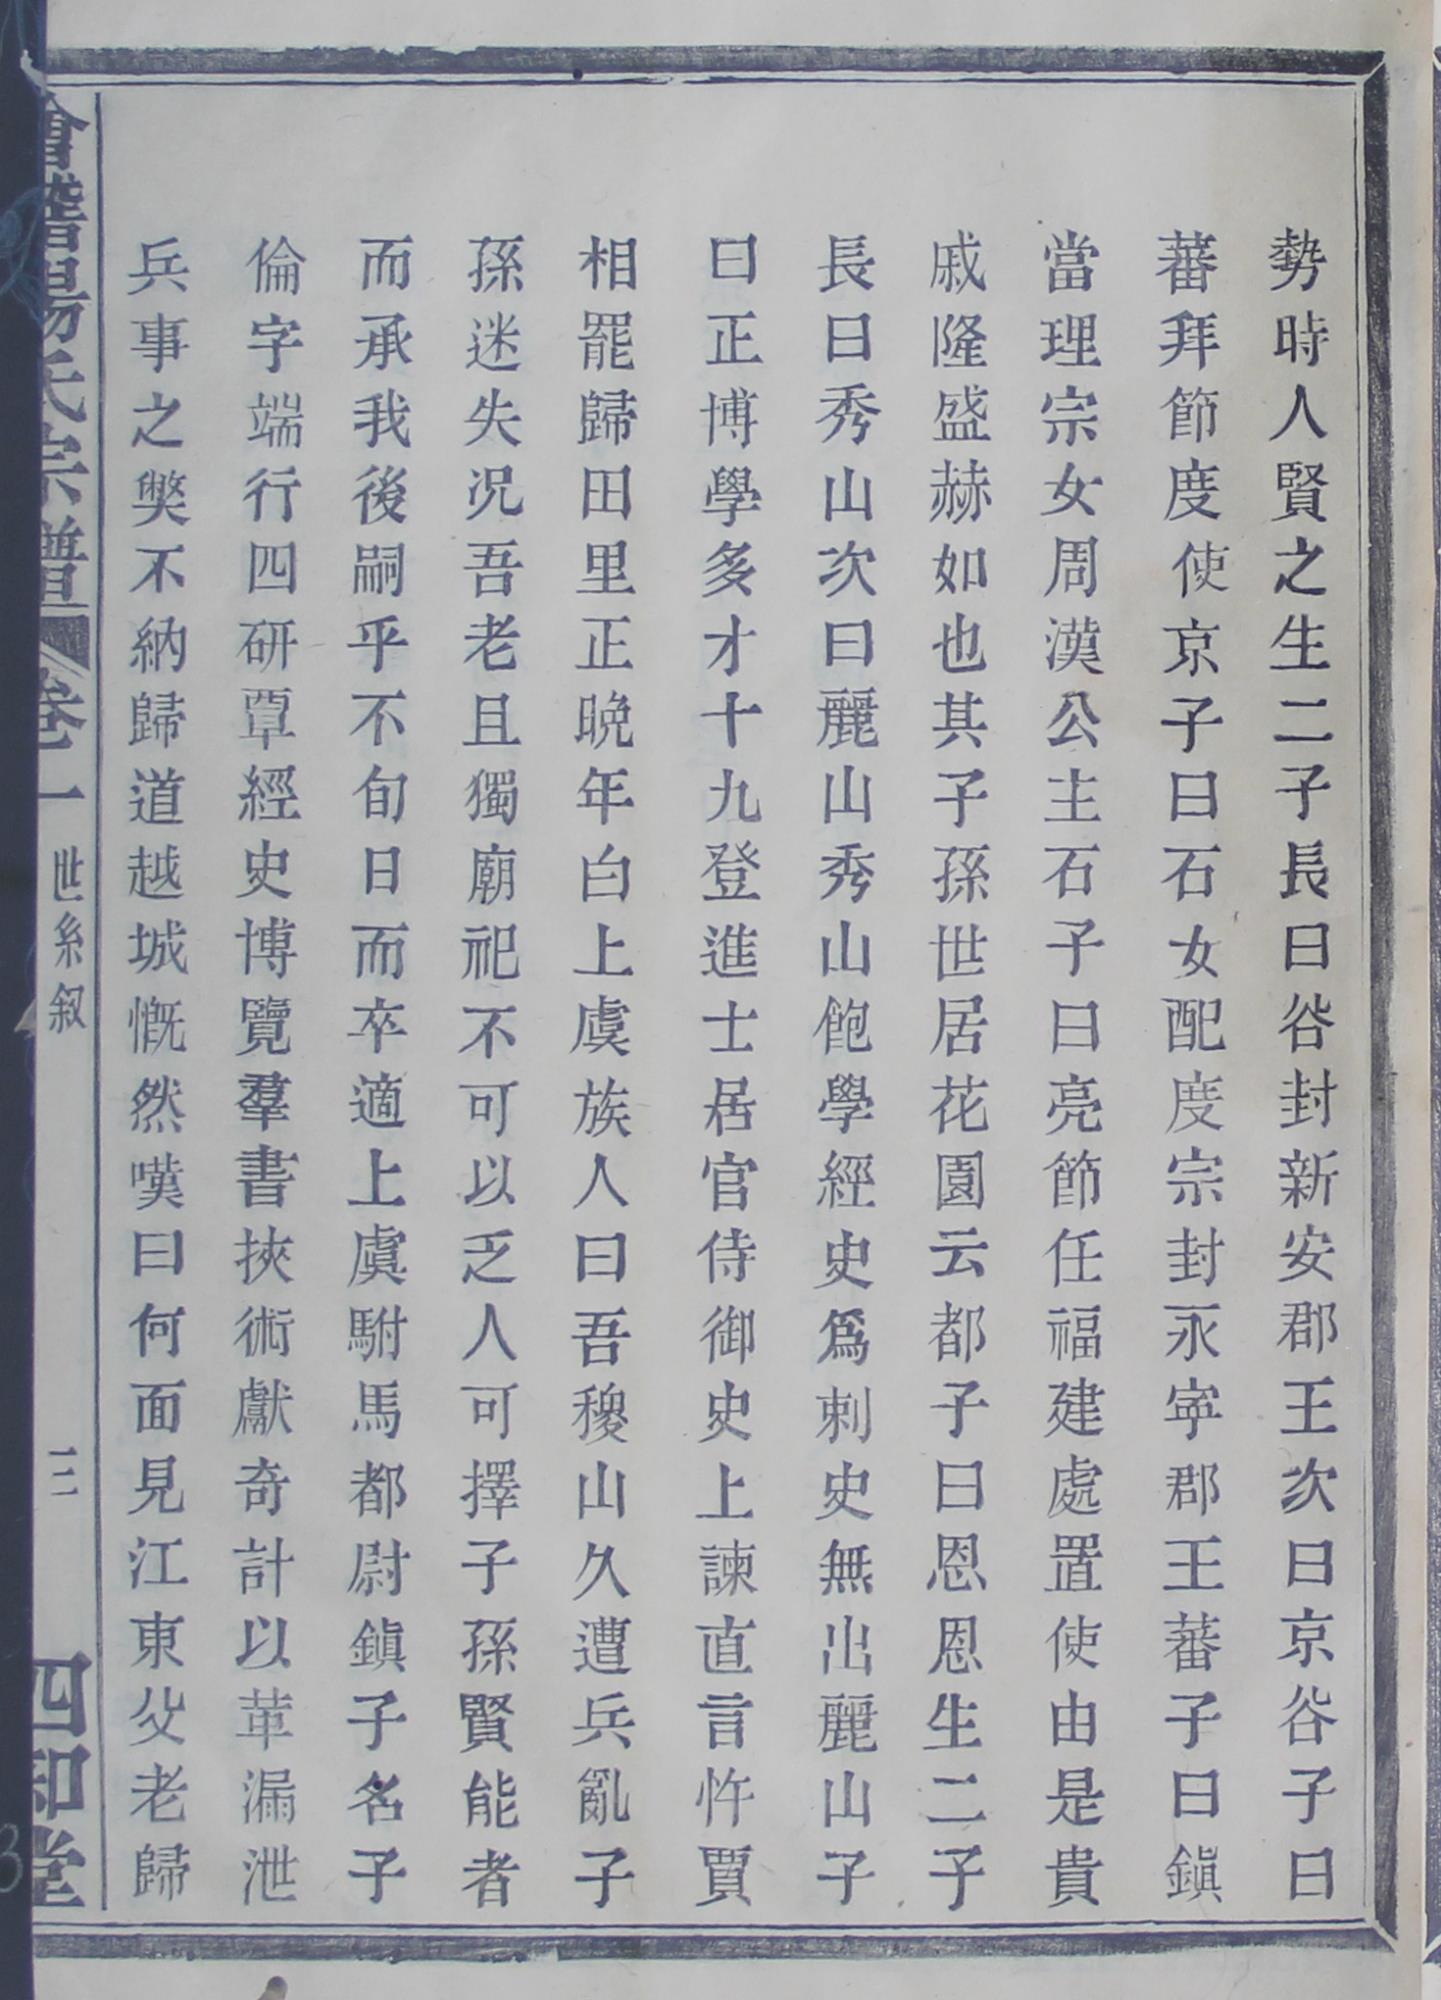 勢時人賢之生二子長曰谷封新安郡王次曰京谷子曰
蕃拜節度使京子曰石女配度宗封永寧郡王蕃子曰鎭
當理宗女周漢公主石子曰亮節任福建處置使由是貴
戚隆盛赫如也其子孫世居花園云都子曰恩恩生二子
長曰秀山次曰麗山秀山飽學經史爲刺史無出麗山子
曰正博學多才十九登進士居官侍御史上諫直言忤賈
相罷歸田里正晚年白上虞族人曰吾稷山久遭兵亂子
孫迷失況吾老且獨廟祀不可以乏人可擇子孫賢能者
而承我後嗣乎不旬日而卒適上虞駙馬都尉鎭子名子
倫字端行四研覃經史博覽羣書挾術獻奇計以革漏泄
兵事之獘不納歸道越城慨然嘆曰何面見江東父老歸
會稽楊氏宗譜 卷一 世系叙 三 四知堂